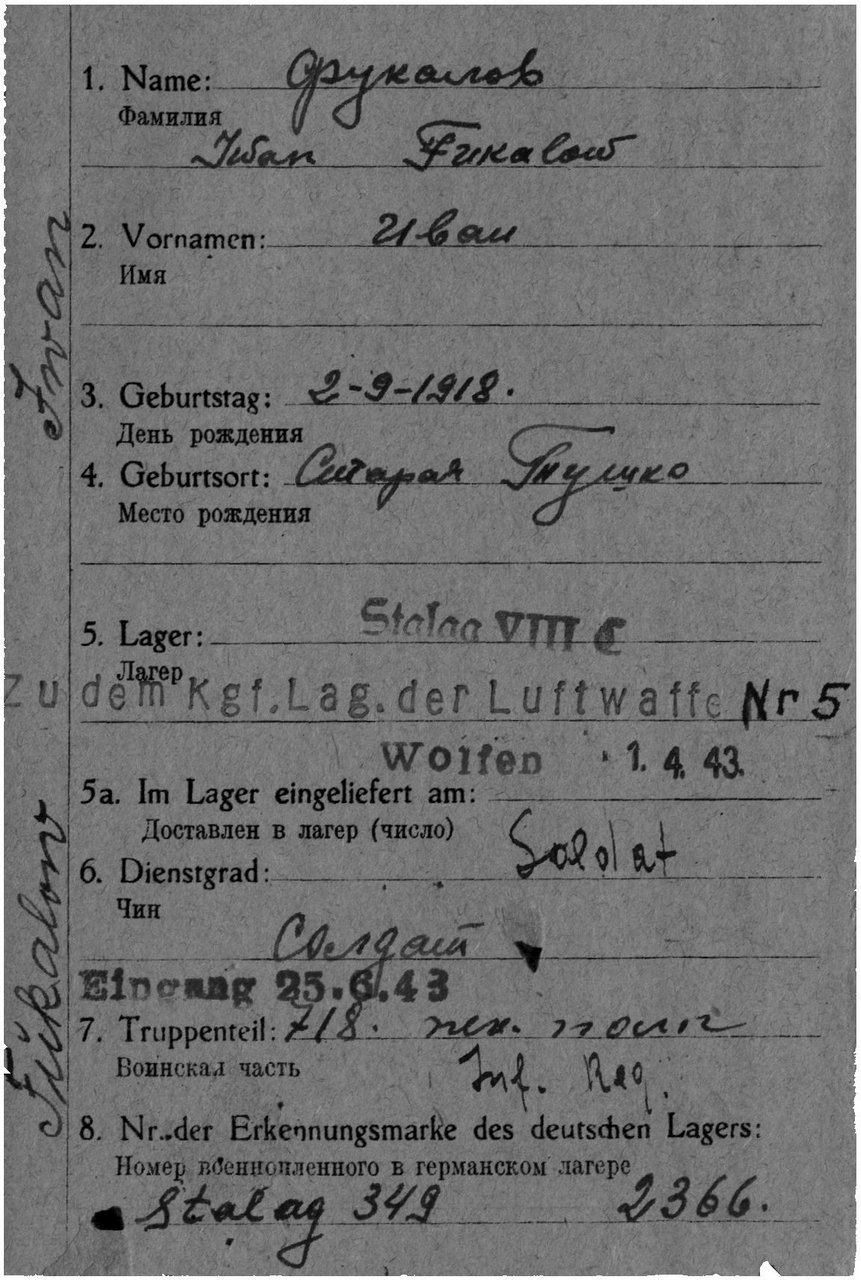 1. Name: Фукалов
Фамилия
Iwan Fukalow
2. Vornamen: Иван
Имя
3. Geburtstag: 2-9-1918.
День рождения
4. Geburtsort: Старая
Место рождения
5. Lager: Stalag VIII C
Лагер
Zu dem Kgf. Lag. der Luftwaffe Nr 5
Wolfen 1. 4. 43.
5a. Im Lager eingeliefert am:
Доставлен в лагер (число)
Soldat
6. Dienstgrad:
Чин
Солдат
Eingang 25.6.43
7. Truppenteil: 718. пех. полк
Воинская часть
Inf. Reg.
8. Nr. der Erkennungsmarke des deutschen Lagers:
Номер военнопленного в германском лагере
Stalag 349 2366.
Fükalow Iwan